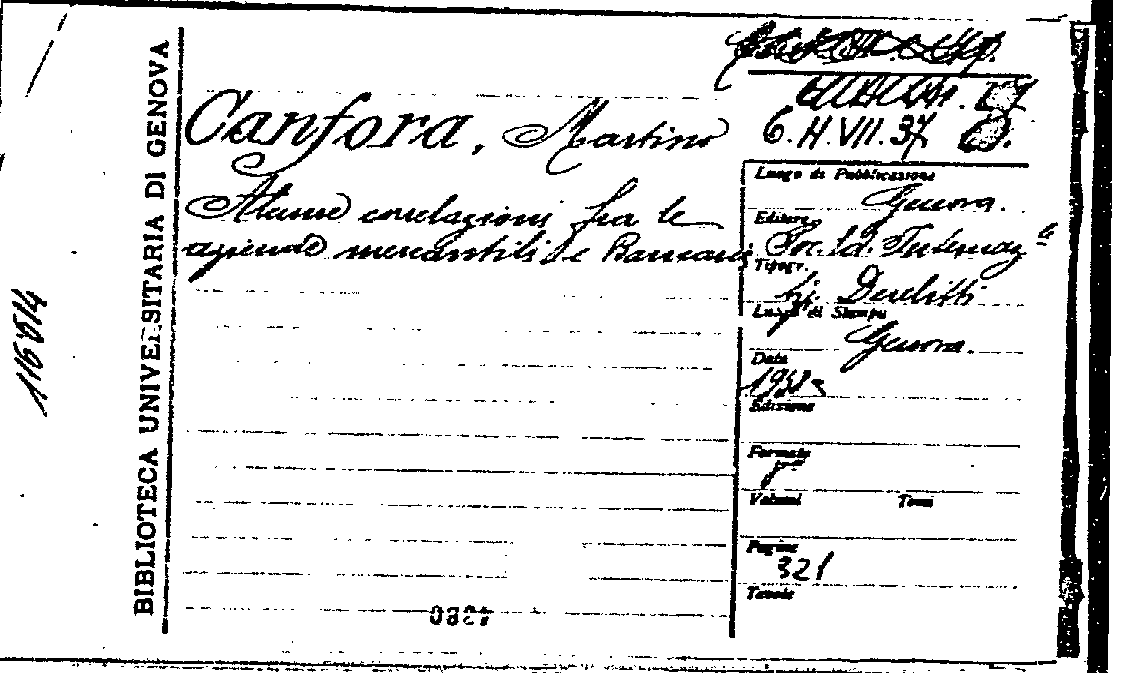 BIBLIOTECA UNIVERSITARIA DI GENOVA
116814
6.H.VII.37
Canfora, Martino
Alcune correlazioni fra le
aziende mercantili e Bancarie
Luogo di Pubblicazione
Genova.
Editore
Soc. Ed. Internaz.le
Tipogr.
Derelitti
Luogo di Stampa
Genova.
Data
Edizione
Formato
Volumi Tomi
Pagine
321
Tavole